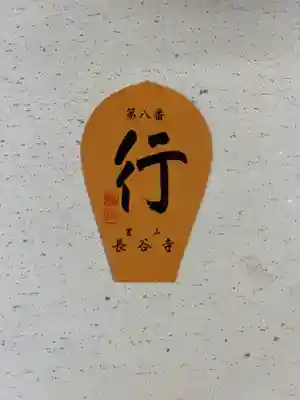 第八番
行
里山
長谷寺